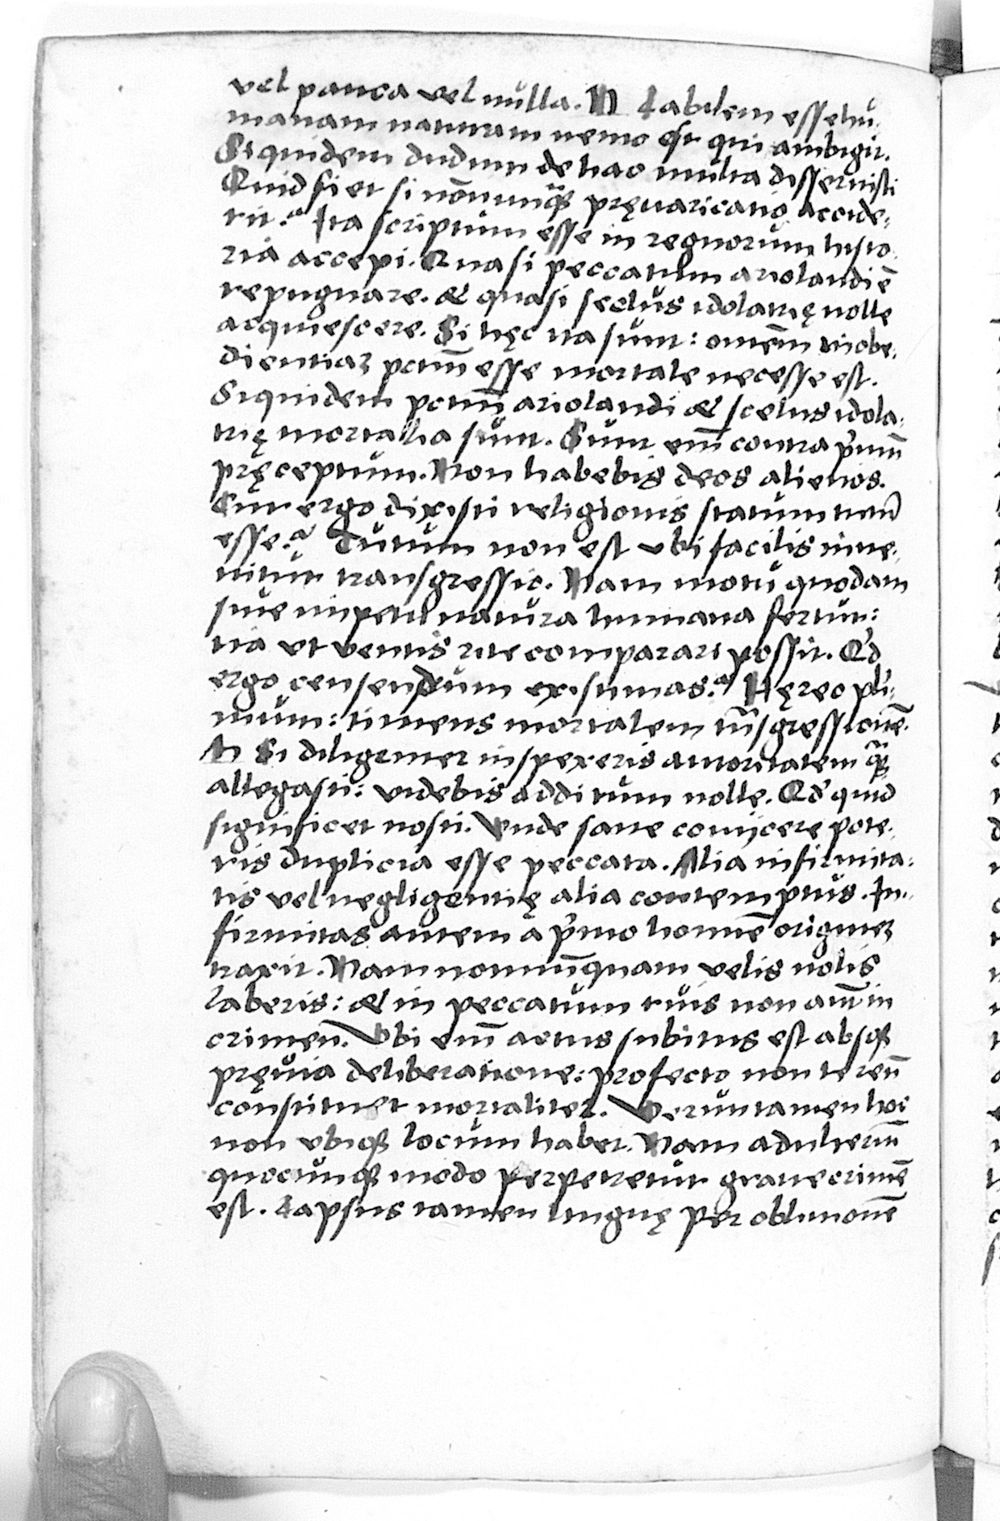 vel pauca vel nulla. N Labilem esse hu-
manam naturam nemo est qui ambigit.
Siquidem dudum de hac multa disseruisti
Quid fiet si nōnunq̃ pręuaricatio accide-
rit? Ita scriptum esse in regnorum histo-
ria accepi. Quasi peccatum ariolandi ē
repugnare. & quasi scelus idolatrię nolle
acquiescere. Si hęc ita sunt: omnem inobe-
dientiaʒ pctm̄ esse mortale necesse est.
Siquidem pctm̄ ariolandi & scelus idola-
trię mortalia sunt. Sunt em̄ contra p̓mum
pręceptum. Non habebis deos alienos.
Cur ergo dixisti religionis statum tutū
esse? Tutum non est vbi facilis inue-
nitur transgressio. Nam motu quodam
siue impetu natura humana fertur:
ita vt ventis rite comparari possit. Qd̓
ergo censendum existimas? Hęreo pl̓i-
mum: timens mortalem tn̄sgressionē.
N Si diligenter inspexeris autoritatem q̃
allegasti: videbis additum nolle. Qd̓ quid
significet nosti. Vnde sane conijcere pote-
ris duplicia esse peccata. Alia infirmita-
tis vel negligentię alia contemptus. In-
firmitas autem a p̓mo homīe origineʒ
traxit. Nam nonnunquam velis nolis
laberis: & in peccatum ruis non aūt in
crimen. Vbi em̄ actus subitus est absq̓
pręuia deliberatione: profecto non te reū
constituet mortaliter. Veruntamen hoc
non vbiq̓ locum habet. Nam adulteriū
quocunq̓ modo perpetretur graue crimē
est. Lapsus tamen linguę per obliuionē